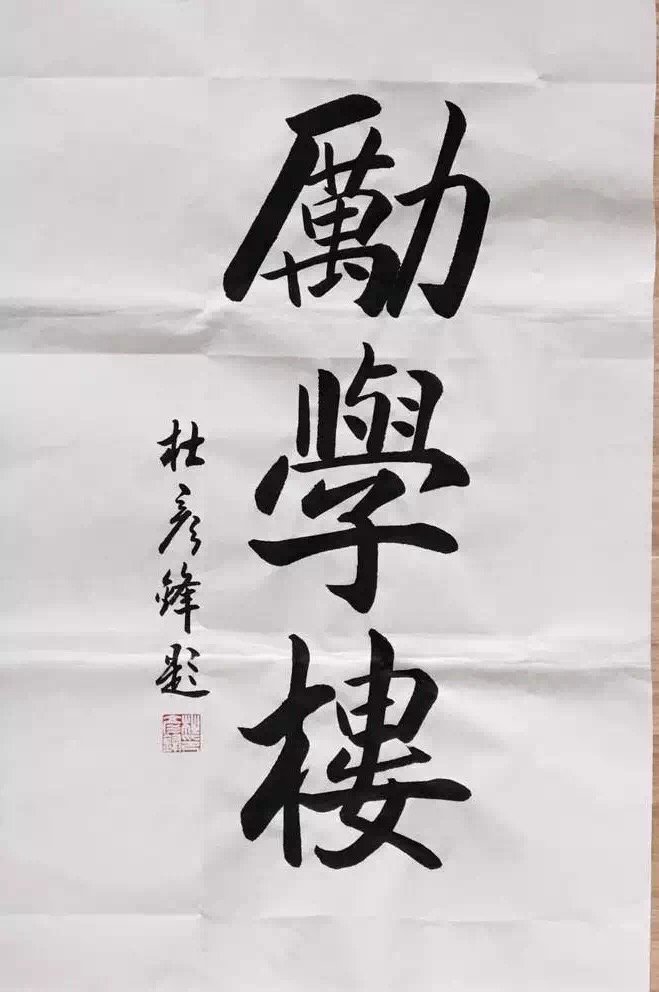 勵學樓
杜彦鋒題